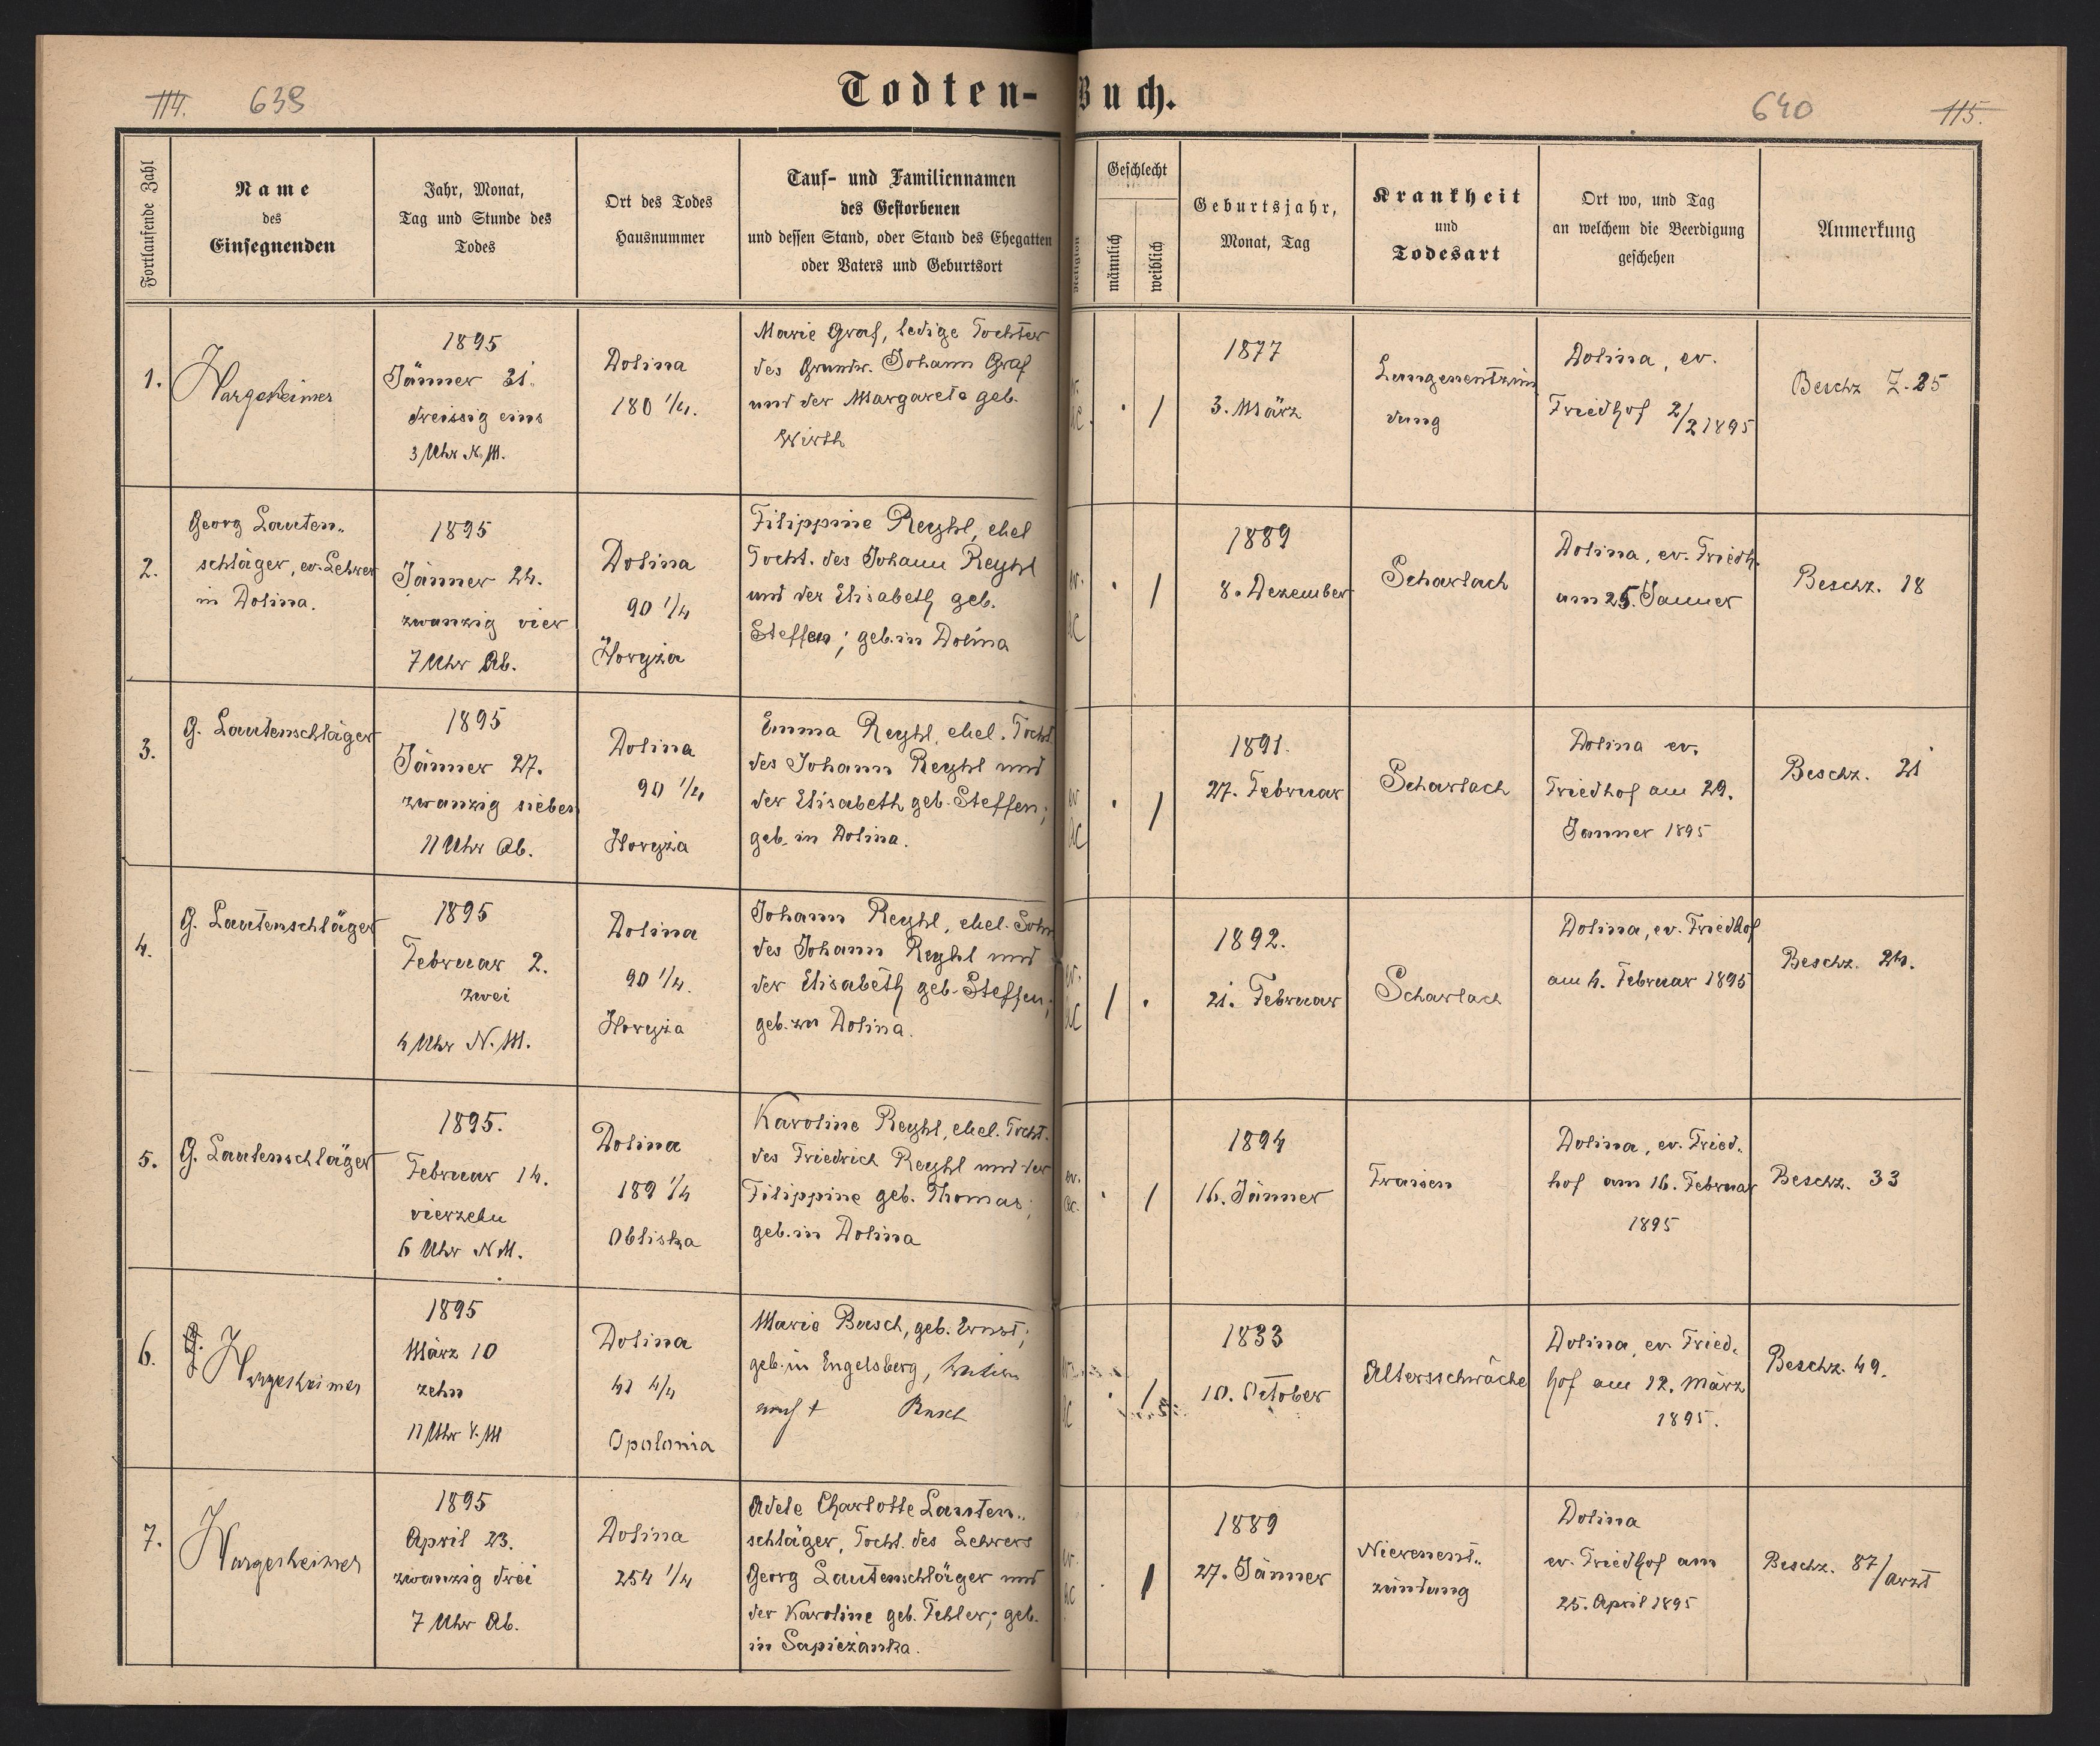 114. 639
Todten-Buch.
640 115.
Fortlaufende Zahl
Name
des
Einsegnenden
Jahr, Monat,
Tag und Stunde des
Todes
Ort des Todes
Hausnummer
Tauf- und Familiennamen
des Gestorbenen
und dessen Stand, oder Stand des Ehegatten
oder Vaters und Geburtsort
Religion
Geschlecht
männlich
weiblich
Geburtsjahr,
Monat, Tag
Krankheit
und
Todesart
Ort wo, und Tag
an welchem die Beerdigung
geschehen
Anmerkung
1.
Hargesheimer
1895
Jänner 31.
dreissig eins
3 Uhr N.M.
Dolina
180 1/4.
Marie Graf, ledige Tochter
des Grundw. Johann Graf
und der Margarete geb.
Wirth
ev.
AC.
1877
3. März
Lungenentzün
dung
Dolina, ev.
Friedhof 2/2 1895
Beschz Z. 25
2.
Georg Lauten„
schläger, ev. Lehrer
in Dolina.
1895
Jänner 24.
zwanzig vier
7 Uhr Ab.
Dolina
90 1/4
Horyża
Filippine Reyhl, ehel
Tocht. des Johann Reyhl
und der Elisabeth geb.
Steffen; geb. in Dolina
ev.
AC
1889
8. Dezember
Scharlach
Dolina, ev. Friedh.
am 25. Janner
Beschz. 18
3.
G. Lautenschläger
1895
Jänner 27.
zwanzig sieben
11 Uhr Ab.
Dolina
90 1/4
Horyża
Emma Reyhl, ehel. Tocht.
des Johann Reyhl und
der Elisabeth geb. Steffen;
geb. in Dolina.
ev
AC
1891.
27. Februar
Scharlach
Dolina ev.
Friedhof am 29.
Janner 1895
Beschz. 21
4.
G. Lautenschläger
1895
Februar 2.
zwei
4 Uhr N. M.
Dolina
90 1/4.
Horyża
Johann Reyhl, ehel. Sohn
des Johann Reyhl und
der Elisabeth geb. Steffen;
geb. zu Dolina.
ev.
AC
1892.
21. Februar
Scharlach
Dolina, ev. Friedhof
am 4. Februar 1895
Beschz. 24.
5.
G. Lautenschläger
1895.
Februar 14.
vierzehn
6 Uhr N.M.
Dolina
189 1/4
Obliska
Karoline Reyhl, ehel. Tocht.
des Friedrich Reyhl und der
Filippine geb. Thomas;
geb. in Dolina
ev.
ac.
1894
16. Jänner
Fraisen
Dolina, ev. Fried.
hof am 16. Februar
1895
Beschz. 33
6.
G. Hargesheimer
1895
März 10
zehn
11 Uhr V. M
Dolina
41 4/4
Opolonia
Marie Busch, geb. Ernst;
geb. in Engelsberg,
nach † Busch
AC
1833
10. October
Altersschwäche
Dolina, ev Fried.
hof am 12. März
1895.
Beschz. 49.
7.
Hargesheimer
1895
April 23.
zwanzig drei
7 Uhr Ab.
Dolina
254 1/4
Adele Charlotte Lauten„
schläger, Tocht. des Lehrers
Georg Lautenschläger und
der Karoline geb. Fehler; geb.
in Sapieżanka.
ev.
AC
1889
27. Jänner
Nierenent„
zündung
Dolina
ev. Friedhof am
25. April 1895
Beschz. 87/arzt